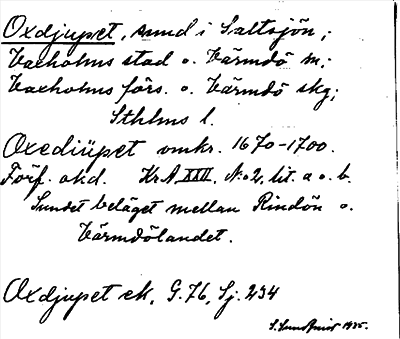 Oxdjupet, sund i Saltsjön;
Vaxholms stad o. Värmdö sn;
Vaxholms förs. o. Värmdö skg;
Sthlms l.
Oxediüpet omkr. 1670-1700.
Förf. okd. Kr.A XXII, N:o 2, lit. a o. b.
Sundet beläget mellan Rindön o.
Värmdölandet.
Oxdjupet ek, G.76, Sj. 234
1935.